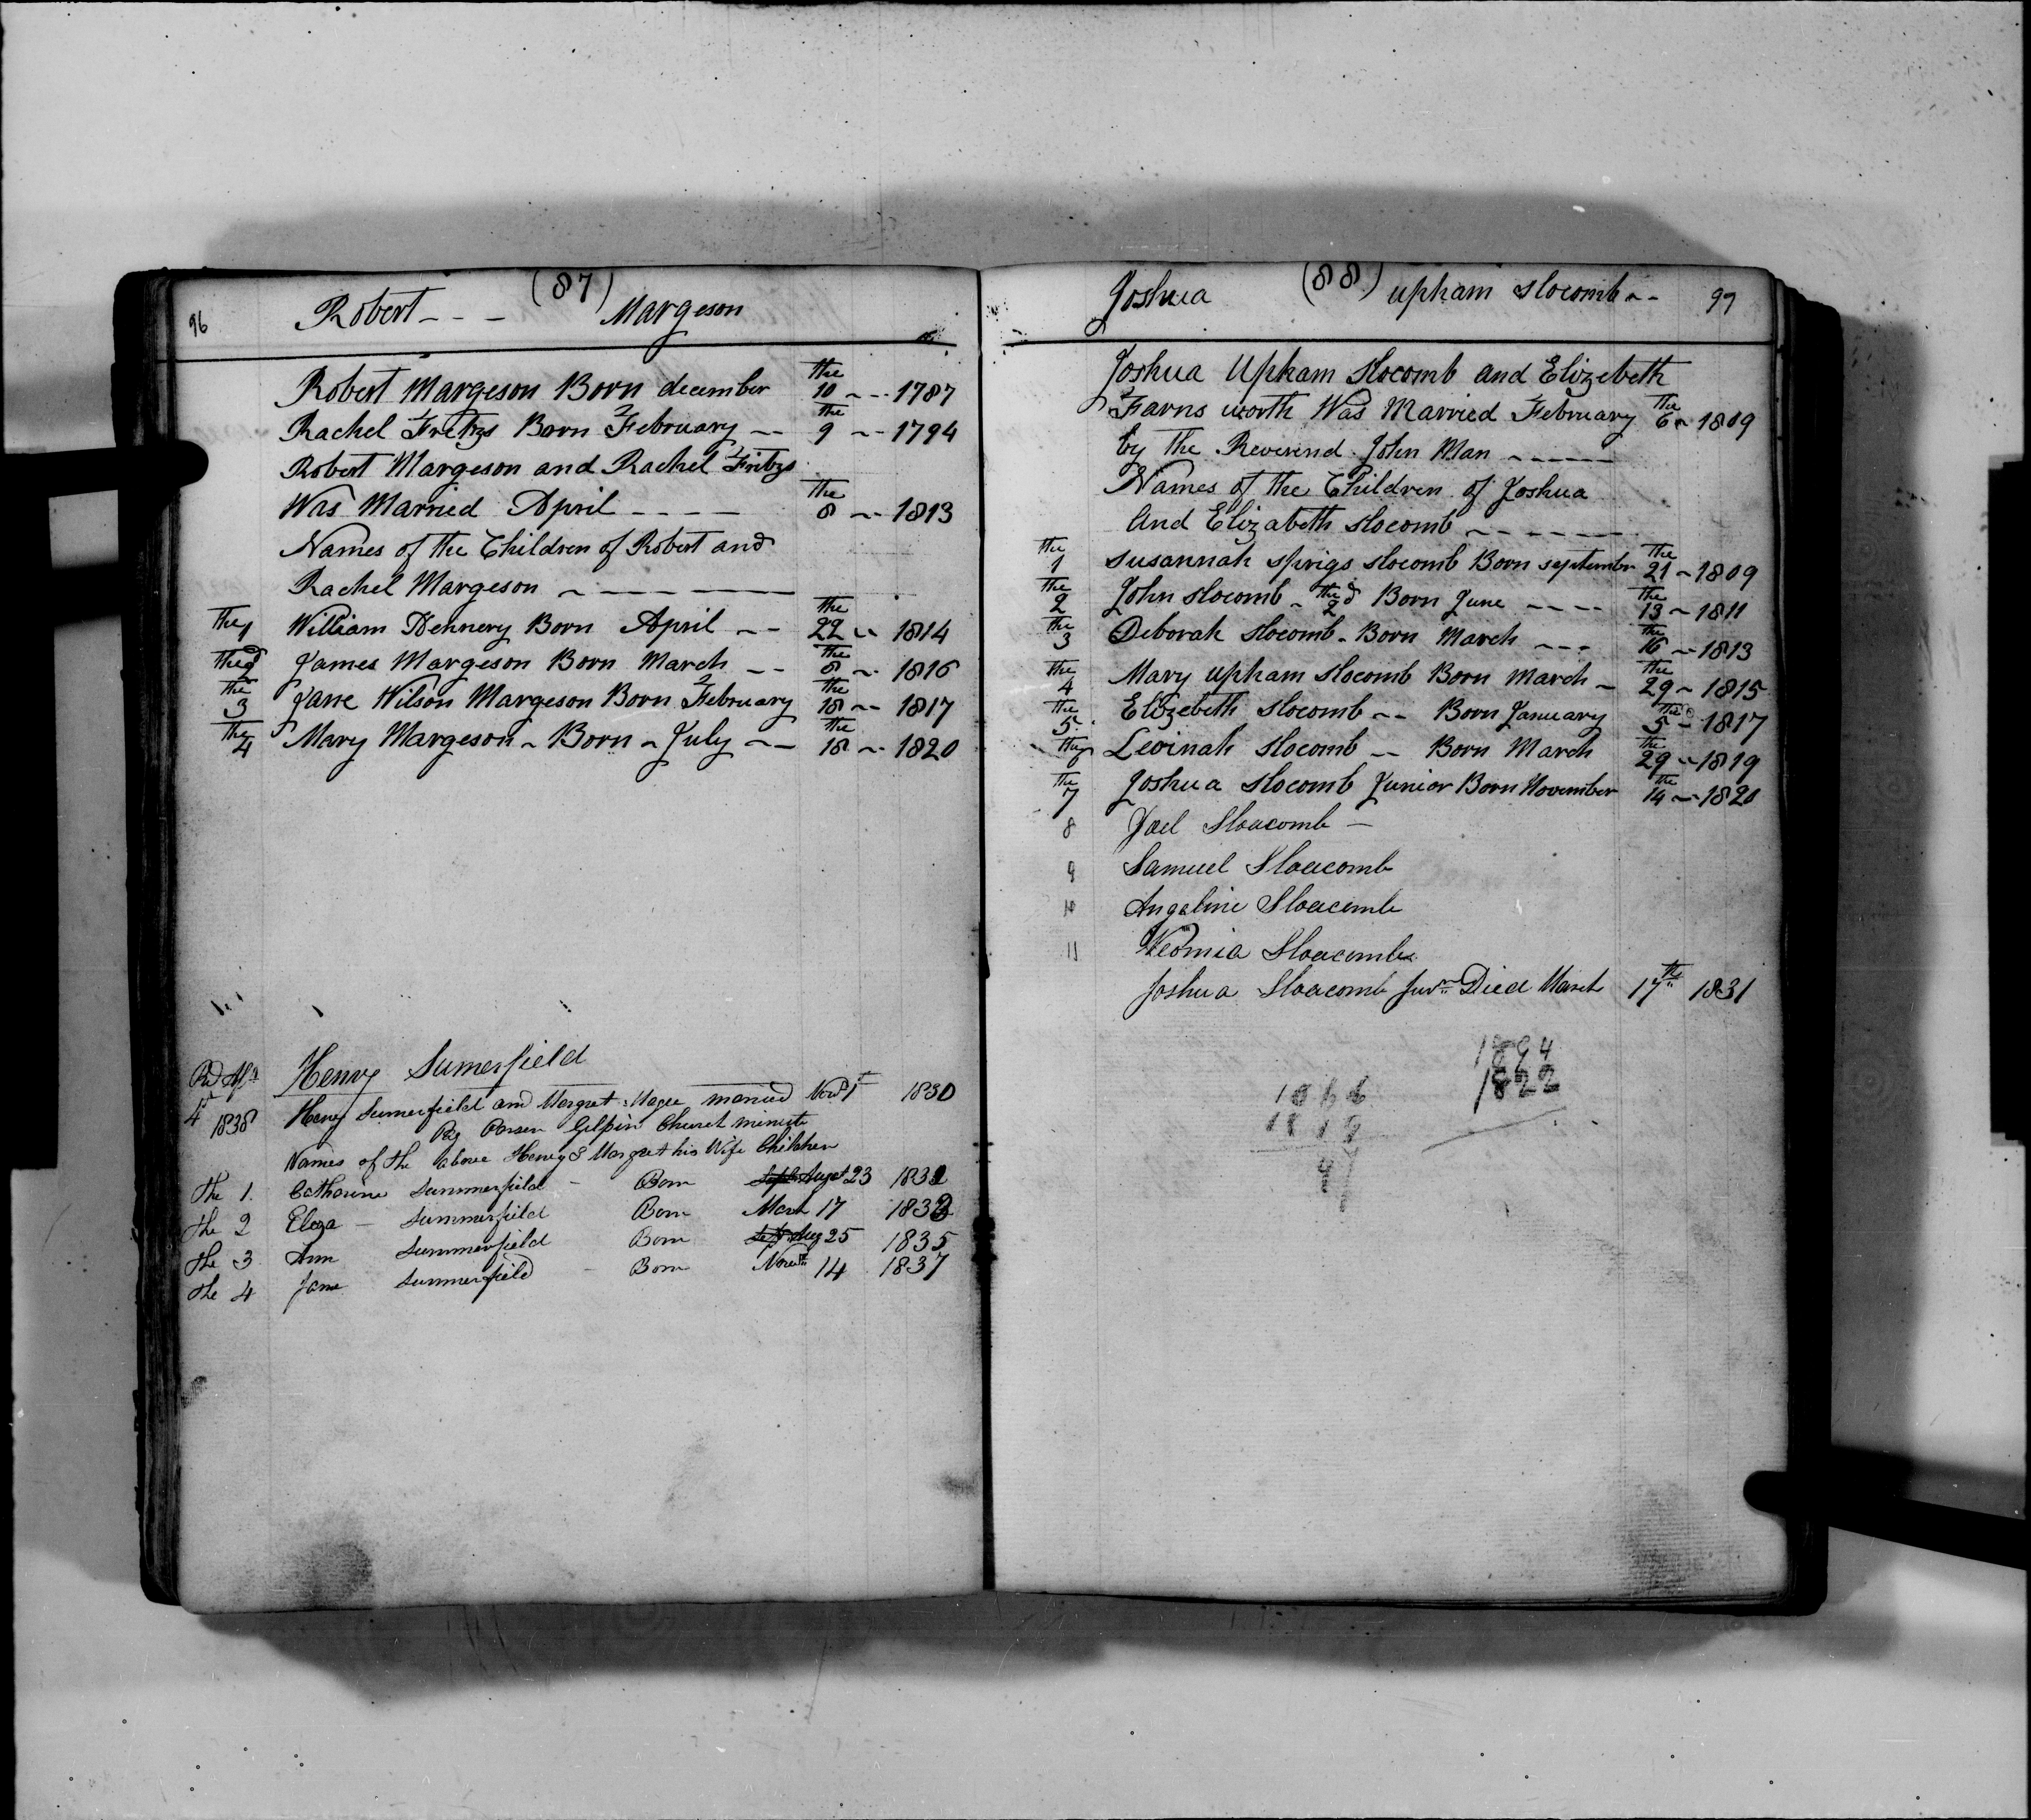 96 Robert - - - (87) Margeson
Robert Margeson Born december the 10 ~ - - 1787
Rachel Fritzs Born February -- the 9 ~ - 1794
Robert Margeson and Rachel Fritzs
Was Married April - - - - the 8 ~ - 1813
Names of the Children of Robert and
Rachel Margeson ~ - - - - -
the 1 William Hennery Born April ~ - the 22 ~ 1814
the 2d James Margeson Born March - - the 8 ~ - 1816
the 3 Jane Wilson Margeson Born February the 18 ~ - 1817
the 4 Mary Margeson ~ Born ~ July ~ - the 18 ~ - 1820
Henry Sumerfield
4th 1838 Henry Sumerfield and Margret Magee married Novr 1st 1830
By Parson Gilpin Church minister
Names of the above Henry & Margret his Wife Children
The 1. Catharine Summerfield - Born Sept Augst 23 1831
The 2 Eliza - Summerfield Born March 17 1833
The 3 Ann Summerfield Born Sept Aug 25 1835
The 4 Jane Summerfield - Born Novr 14 1837
Joshua (88) upham Slocomb ~ - 97
Joshua Upham Slocomb and Elizebeth
Farns worth Was Married February the 6 ~ 1809
by the Reverend John Man ~ - - - -
Names of the Children of Joshua
And Elizabeth Slocomb ~ - - - - -
the 1 Susannah Sprigs Slocomb Born September the 21 ~ 1809
the 2 John Slocomb ~ the 2d Born June - - - - the 13 ~ 1811
the 3 Deborah Slocomb ~ Born March ~ - - the 16 ~ - 1813
the 4 Mary upham Slocomb Born March ~ the 29 ~ 1815
the 5 Elizebeth Slocomb ~ - Born January the 5 ~ 1817
the 6 Levinah Slocomb -- Born March the 29 ~ 1819
the 7 Joshua Slocomb Junior Born November the 14 ~ 1820
8 Joel Sloacomb -
9 Samuel Sloacomb
10 Angeline Sloacomb
11 Neomia Sloacomb
Joshua Sloacomb Junr Died March 17th 1831
1894
1822